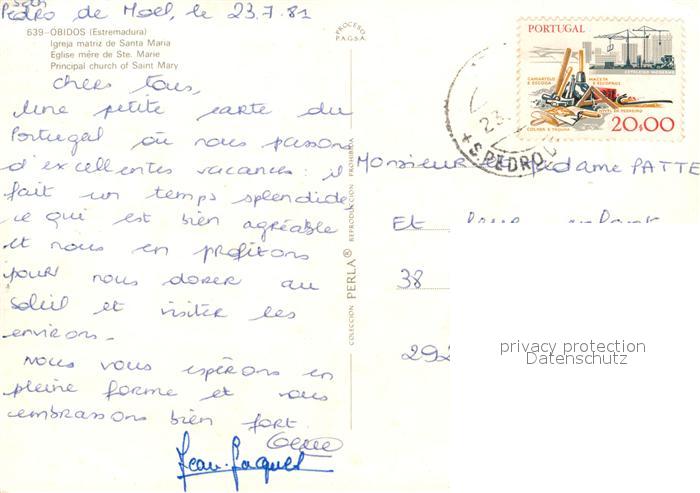 Pedro de Moel, le 23.7.81
639-OBIDOS (Estremadura)
Igreja matriz de Santa Maria
Eglise mère de Ste. Marie
Principal church of Saint Mary
PROCESO
P.A.G.S.A.
Chers tous,
Une petite carte du
Portugal où nous passons
d'excellentes vacances: il
fait un temps splendide
ce qui est bien agréable
et nous en profitons
pour nous dorer au
soleil et visiter les
environs.
Nous vous espérons en
pleine forme et vous
embrassons bien fort.
Jean-Jacques
COLECCION PERLA® REPRODUCCION PROHIBIDA
PORTUGAL
MARTELO
E ESCODA
MACETA
E ESCOPROS
COLHER E TROLHA
20$00
23
+ S. PEDRO
Monsieur et Madame PATTE
Et
38
292
privacy protection
Datenschutz